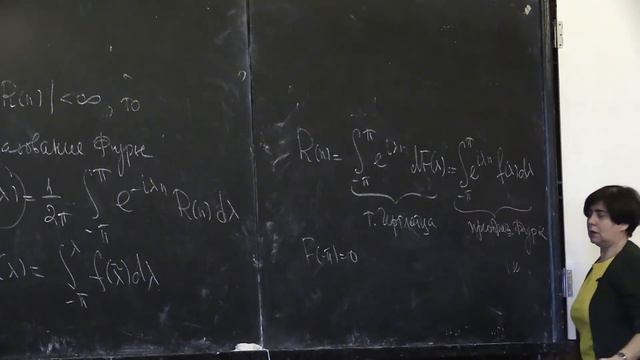 R(n)| < ∞, то
зование Фурье
λ) = 1/2π ∫_{-π}^{π} e^{-iλn} R(n) dλ
(λ) = ∫_{-π}^{λ} f(λ̃) dλ̃
R(n) = ∫_{-π}^{π} e^{iλn} dF(λ) = ∫_{-π}^{π} e^{iλn} f(λ) dλ
т. Герглотца Фурье
F(-π) = 0